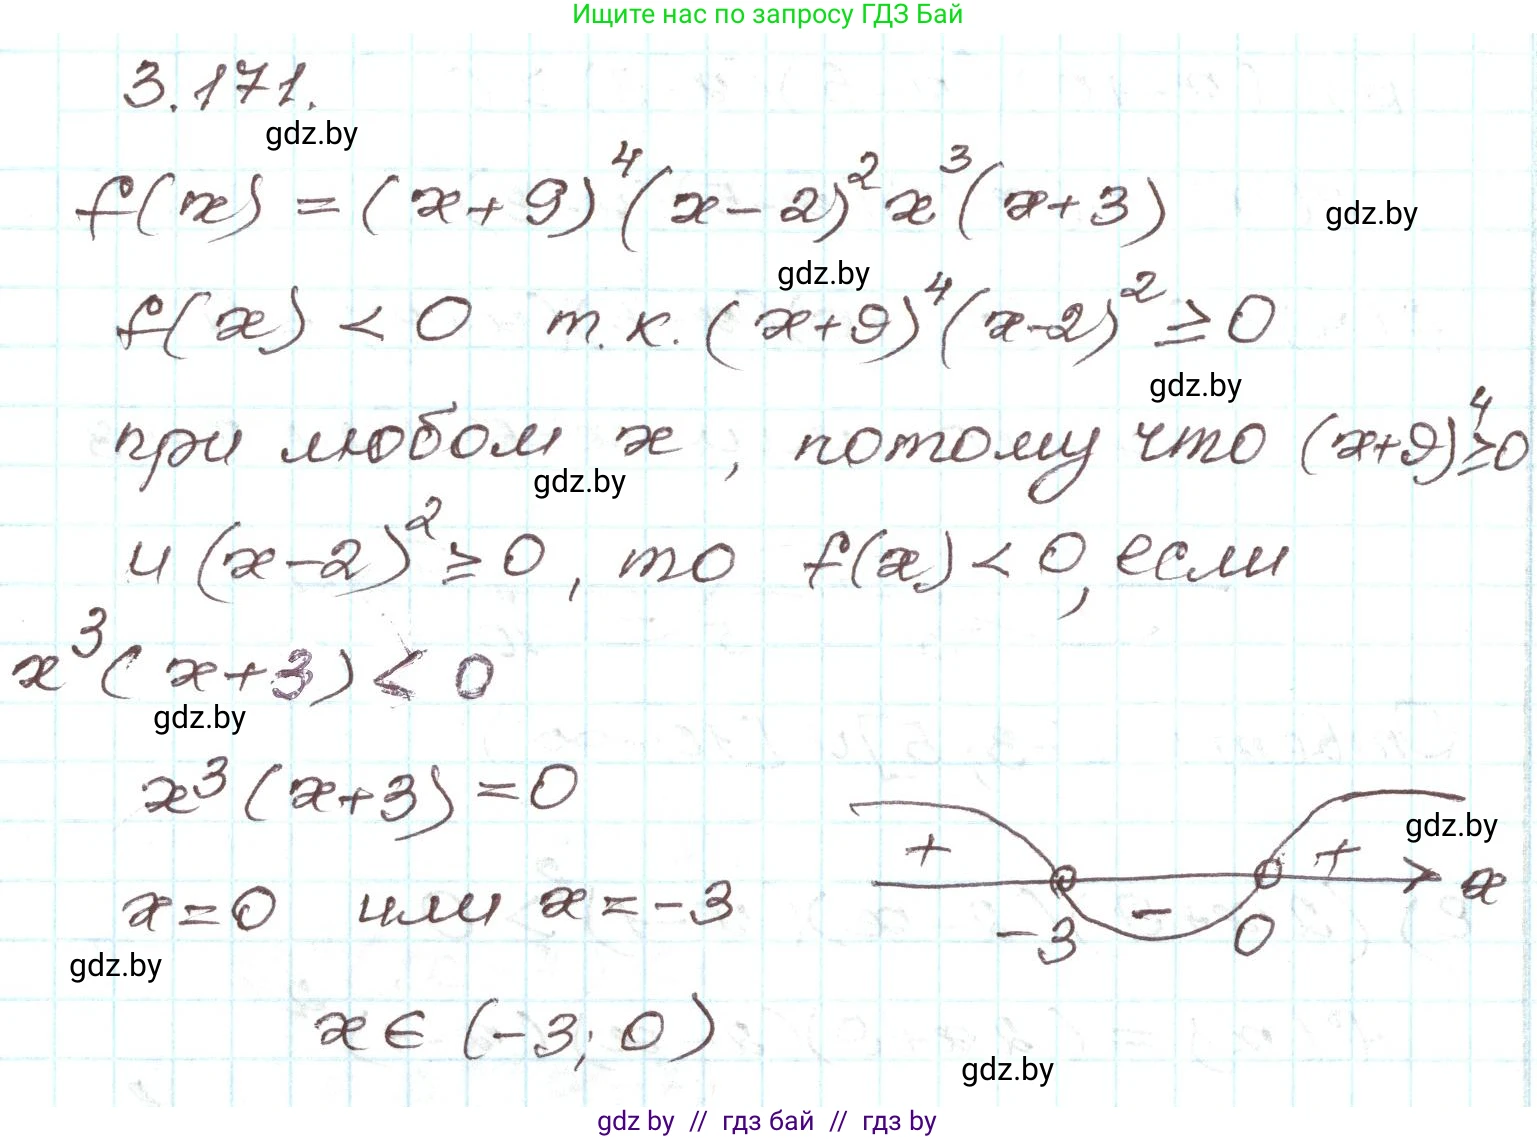 Ищите нас по запросу ГДЗ Бай
3.171.
gdz.by
f(x) = (x+9)⁴(x-2)²x³(x+3)
gdz.by
gdz.by
f(x) < 0 т.к. (x+9)⁴(x-2)² ≥ 0
gdz.by
при любом x, потому что (x+9)⁴≥0
gdz.by
и (x-2)² ≥ 0, то f(x) < 0, если
x³(x+3) < 0
gdz.by
x³(x+3) = 0
gdz.by
+ - + x
-3 0
x=0 или x=-3
gdz.by
x ∈ (-3; 0)
gdz.by
gdz by // гдз бай // гдз by